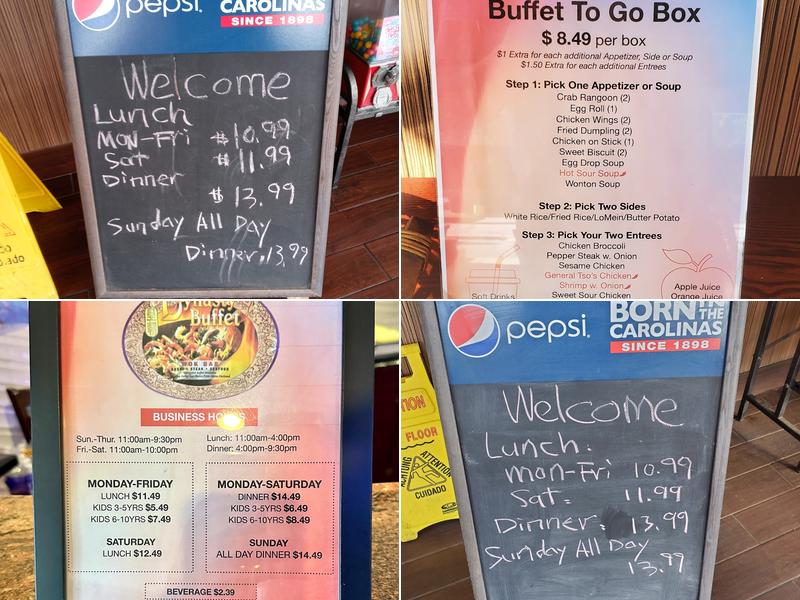 pepsi.
CAROLINAS
SINCE 1898
Welcome
Lunch
MON-Fri $10.99
Sat $11.99
Dinner
$13.99
Sunday All Day
Dinner,13,99
Buffet To Go Box
$ 8.49 per box
$1 Extra for each additional Appetizer, Side or Soup
$1.50 Extra for each additional Entrees
Step 1: Pick One Appetizer or Soup
Crab Rangoon (2)
Egg Roll (1)
Chicken Wings (2)
Fried Dumpling (2)
Chicken on Stick (1)
Sweet Biscuit (2)
Egg Drop Soup
Hot Sour Soup
Wonton Soup
Step 2: Pick Two Sides
White Rice/Fried Rice/LoMein/Butter Potato
Step 3: Pick Your Two Entrees
Chicken Broccoli
Pepper Steak w. Onion
Sesame Chicken
General Tso's Chicken
Shrimp w. Onion
Sweet Sour Chicken
Soft Drinks
Apple Juice
Orange Juice
Dynasty
Buffet
BUSINESS HOURS
Sun.-Thur. 11:00am-9:30pm
Fri.-Sat. 11:00am-10:00pm
Lunch: 11:00am-4:00pm
Dinner: 4:00pm-9:30pm
MONDAY-FRIDAY
LUNCH $11.49
KIDS 3-5YRS $5.49
KIDS 6-10YRS $7.49
SATURDAY
LUNCH $12.49
MONDAY-SATURDAY
DINNER $14.49
KIDS 3-5YRS $6.49
KIDS 6-10YRS $8.49
SUNDAY
ALL DAY DINNER $14.49
BEVERAGE $2.39
pepsi.
BORN IN
THE
CAROLINAS
SINCE 1898
Welcome
Lunch:
mon-Fri 10.99
Sat: 11.99
Dinner: 13.99
Sunday All Day
13.99
FLOOR
ATTENTION
ACHTUNG
CUIDADO